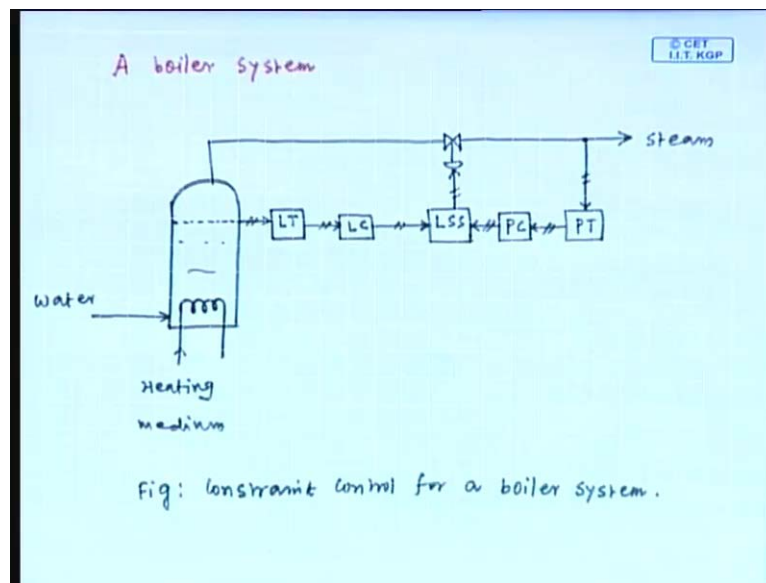 © CET
I.I.T. KGP
A boiler system
steam
LT
LC
LSS
PC
PT
water
Heating
medium
Fig: Constraint control for a boiler system.